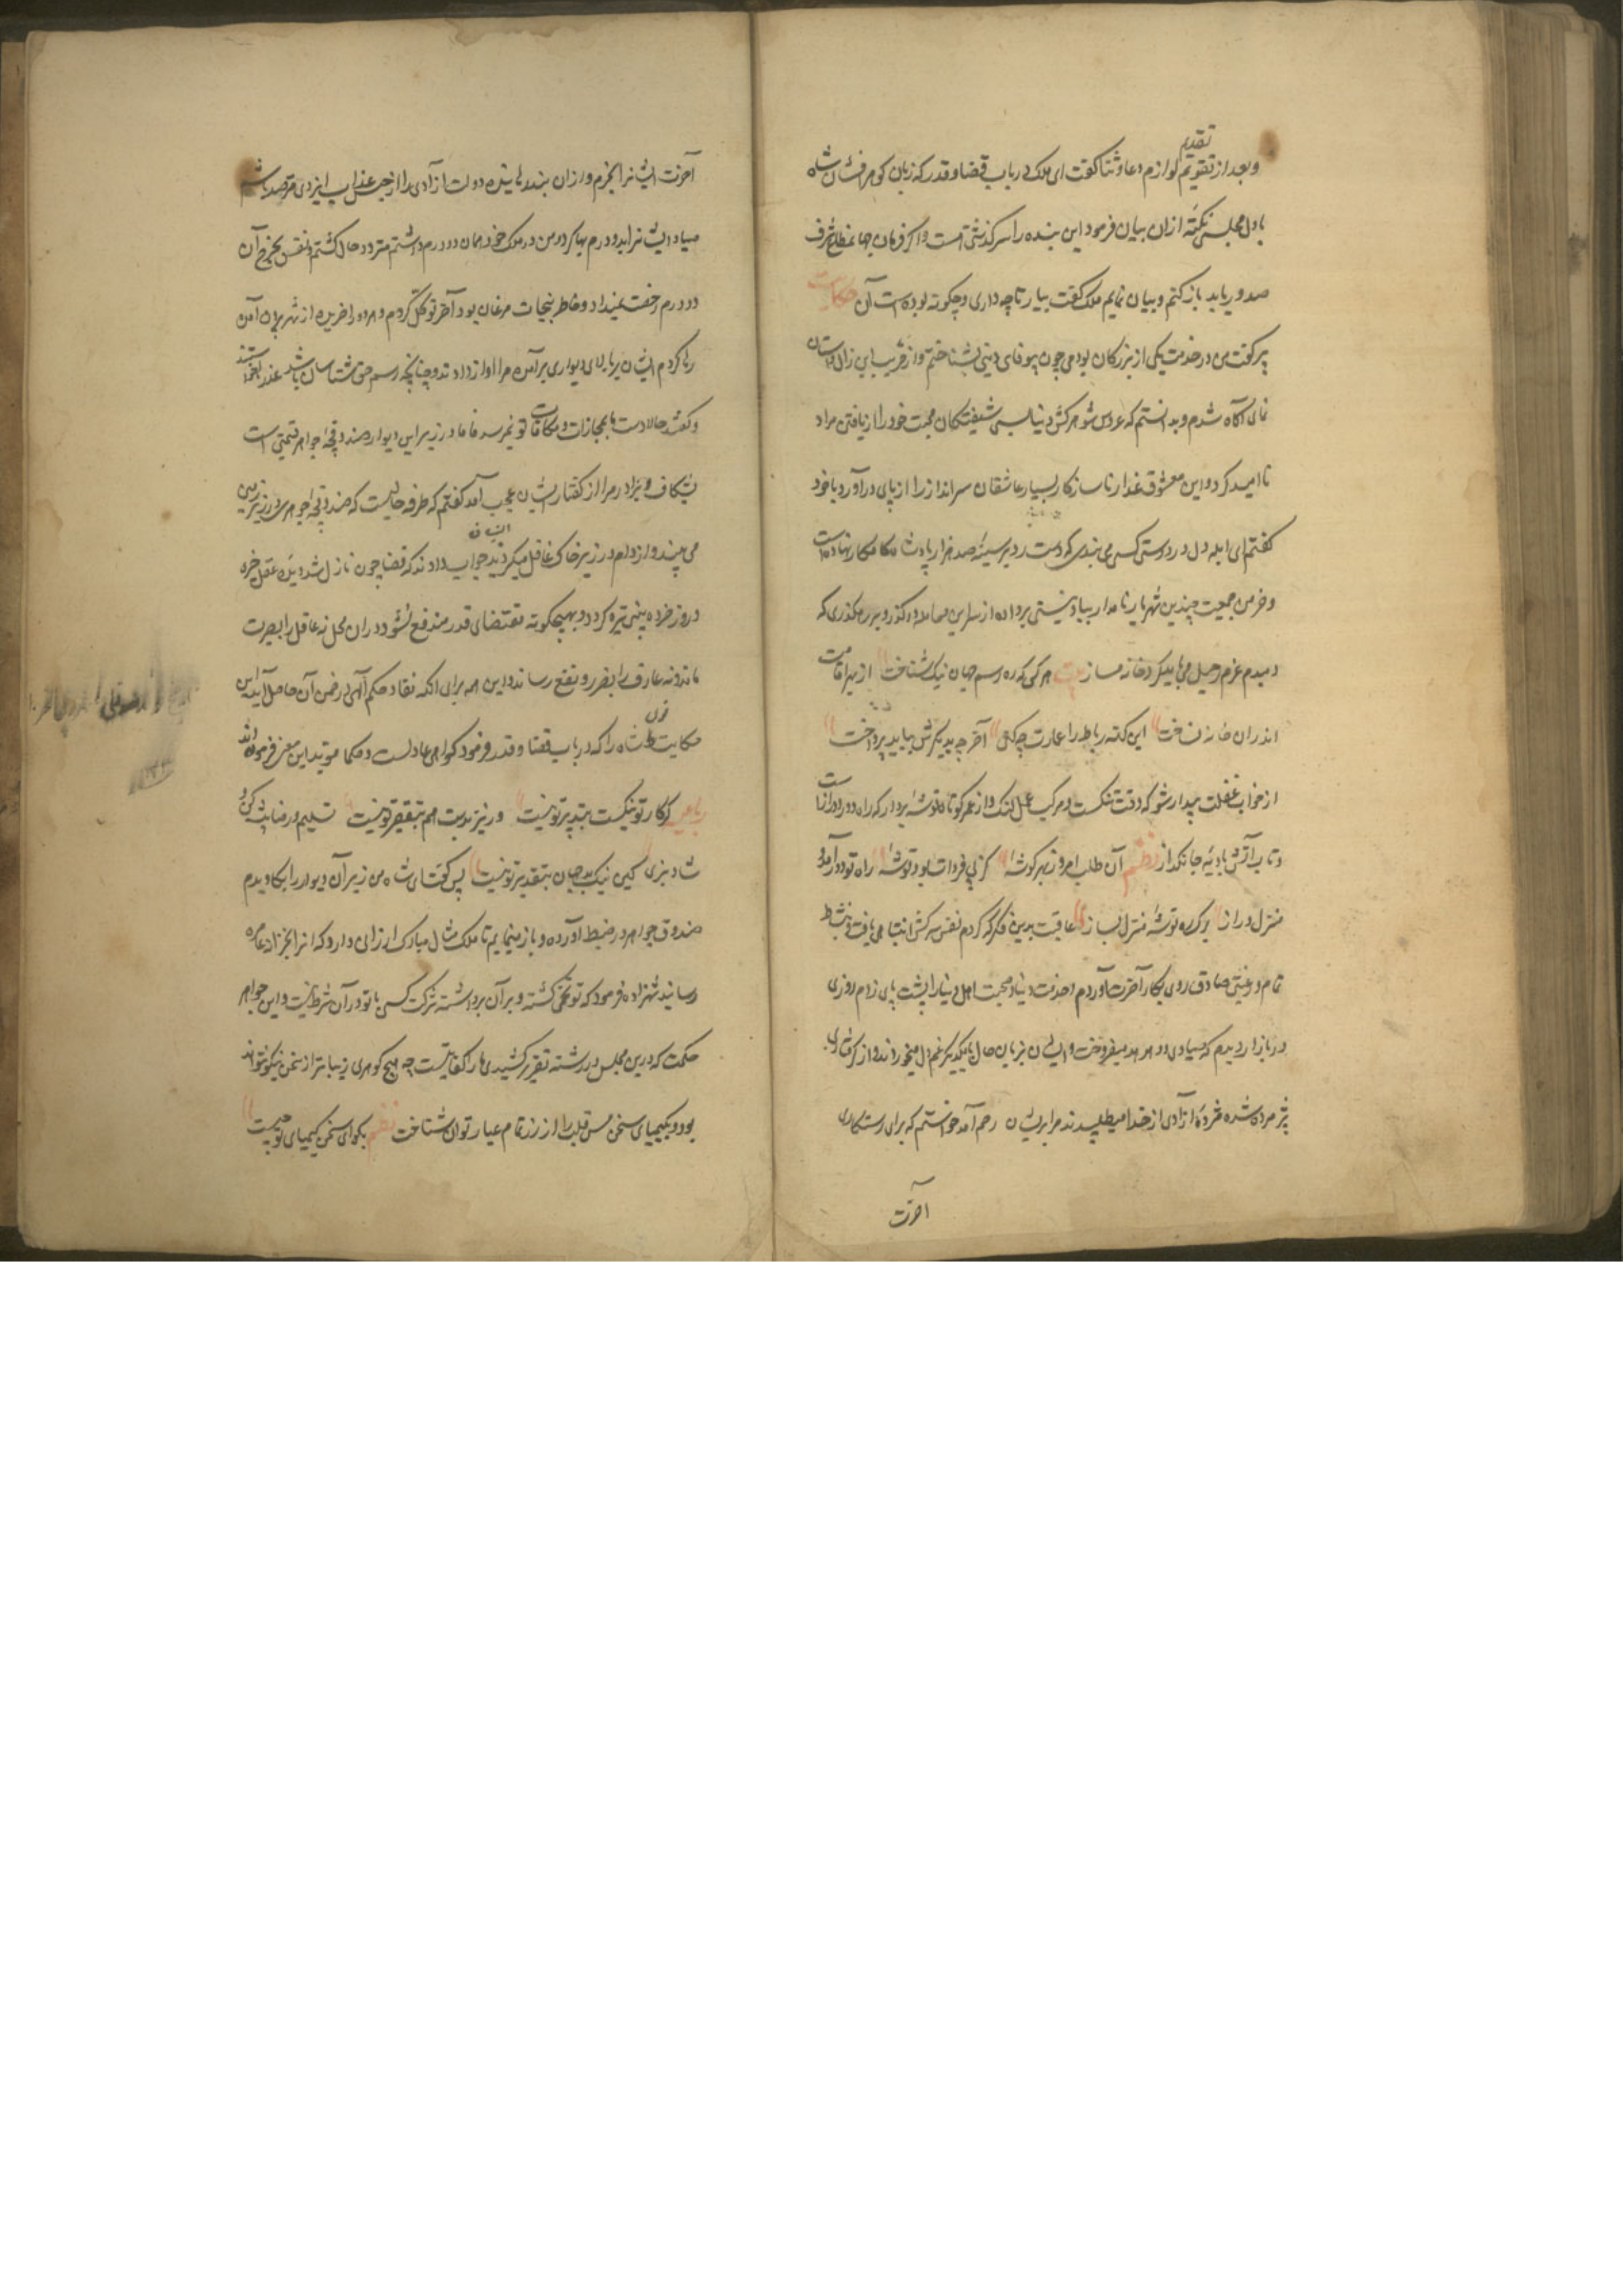 تقدیم
وبعد از تقویم لوازم دعا و ثنا گفت ای ملک در باب قضا و قدر که زبان گوهرفشان شاه
با دل مجلس نکته ازان بیان فرمود این بنده را سرگذشتی است و اگر فرمان جهانمطاع شرف
صدور یابد باز گنم و بیان نمایم ملک گفت بیار تا چه داری و چگونه بوده است آن حکایت
پیر گفت من در خدمت یکی از بزرگان بودمی چون بیوفای دینی بشناختم و از فریب این زال داستان
نمای آگاه شدم و بدانستم که عروس شوهرکش دنیا بسی شیفتگان محبت خود را از یافتن مراد
نا امید کرد و این معشوق غدار ناسازگار بسیار عاشقان سرانداز را از پای در آورد با خود
گفتم ای ابله دل در دوستی کسی می بندی که دست رد بر سینه صد هزار پادشاه کامکار نهاده است
و خرمن جمعیت چندین شهریار نامدار بباد نیستی برداده از سر این معامله درگذر و بر رهگذری که
دمبدم عزم رحیل می باید کرد خانه مساز بیت هر کس که ره رسم جهان نیک شناخت از بهر اقامت
اندران خانه نساخت این کهنه رباط را عمارت چه کنی آخر چه بدیگرش بباید پرداخت
از خواب غفلت بیدار شو که وقت تنگست و مرکب عمل لنگ و از عمر کوتاه توشه بردار که راه دور و درازاست
و تاب آتش بادیه جانگداز نظم آن طلب امروز بهر گوشه کز پی فردات بود توشه راه تو دور آمد و
منزل دراز برگ ره توشه منزل بساز عاقبت بدین فکر که کردم نفس سرکش انتباهی یافت و بنشاط
تمام و رغبتی صادق روی بکار آخرت آوردم و خدمت دنیا و محبت اهل دنیا را پشت پای زدم روزی
در بازار دیدم که صیادی دو هدهد میفروخت و ایشان بزبان حال با یکدیگر غم دل میخوردند و از گرفتاری
پژمرده شده مژده آزادی از خدا میطلبیدند مرا بریشان رحم آمد خواستم که برای رستگاری
آخرت
آخرت ایشانرا بخرم و ازان بند رهانیده دولت آزادی را از حبس عذاب ایزدی مترصد باشم
صیاد ایشانرا بدو درم بها کرد و من در ملک خود همان دو درم داشتم متردد حال گشتم و نفس بخرج آن
دو درم رخصت نمیداد و خاطر بنجات مرغان بود آخر توکل کردم و هر دو را خریده از شهر بیرون آمدن
رها کردم ایشان بر بالای دیواری برآمده مرا آواز دادند و چنانچه رسم حق شناسان باشد عذر خواستند
و گفتند حالا دست ما بمجازات و مکافات تو نمیرسد فاما در زیر این دیوار صندوقچه جواهر قیمتی است
بشکاف و بردار مرا از گفتار ایشان عجب آمد گفتم که طرفه حالیست که صندوقچه جواهر در زیر زمین
ایشان
می بینند و از دام در زیر خاک غافل میگردند جواب دادند که قضا چون نازل شد دیده عقل خیره
و روز خرده بینی تیره گردد و بهیچگونه مقتضای قدر مندفع نشود دران محل نه عاقل را بصیرت
ماند و نه عارف را بضر و نفع رساند و این همه برای آنکه نفاذ حکم آلهی در ضمن آن حاصل آید این
حکایت سخن شاه را که در باب قضا و قدر فرمود گواهی عادلست و حکما مؤید این معنی فرموده اند
رباعی گر کار تو نیکست بتدبیر تو نیست ور نیز بدست هم بتقصیر تو نیست تسلیم و رضا پیشه کن و
شاد بزی کین نیک و بد جهان بتقدیر تو نیست پس گفت ای شاه من زیر آن دیوار را بکاویدم
صندوق جواهر در ضبط آورده و باز مینمایم تا ملک مثال مبارک ارزانی دارد که آنرا بخزانه عامره
رسانند شهزاده فرمود که تو تخمی کشته و بر آن برداشته شرکت کسی با تو در آن شرط نیست و این جواهر
حکمت که درین مجلس در رشته تقریر کشیدی مارا کفایتست چه هیچ گوهری زیباتر از سخن نیکو نتواند
بود و بکیمیای سخن مس قلب را از زر تمام عیار توان شناخت نظم بگو ای سخن کیمیای تو چیست